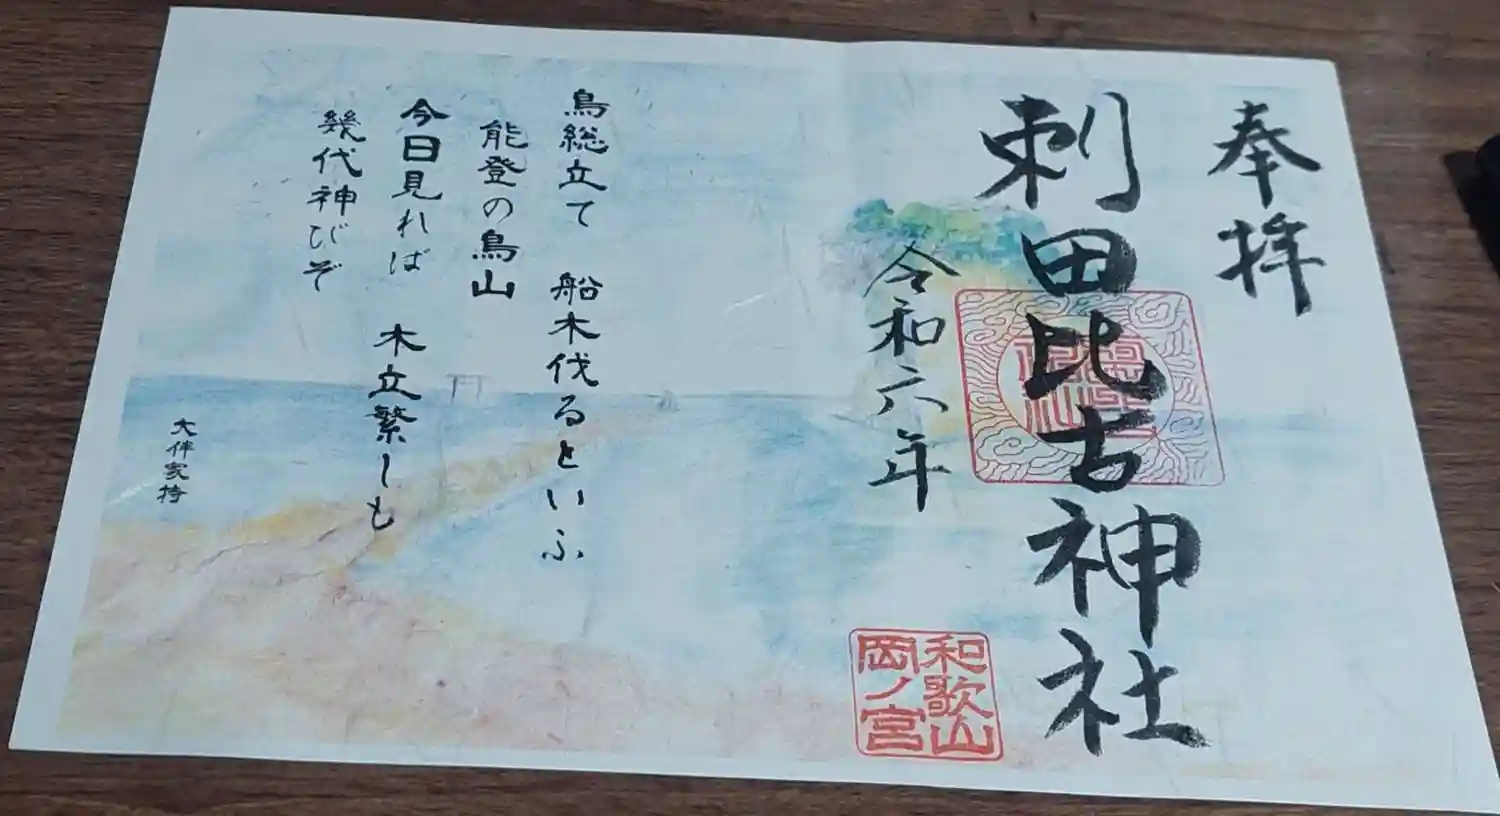 奉拝
刺田比古神社
令和六年
和歌山
岡ノ宮
鳥総立て 船木伐るといふ
能登の島山
今日見れば 木立繁しも
幾代神びぞ
大伴家持